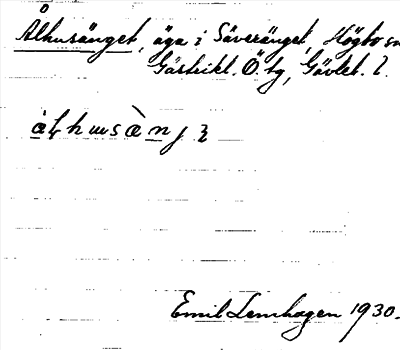 Ålhusänget, äga i Säveränget, Högbo sn
Gästrikl. Ö. tg, Gävleb. l.
Emil Lemhagen 1930.